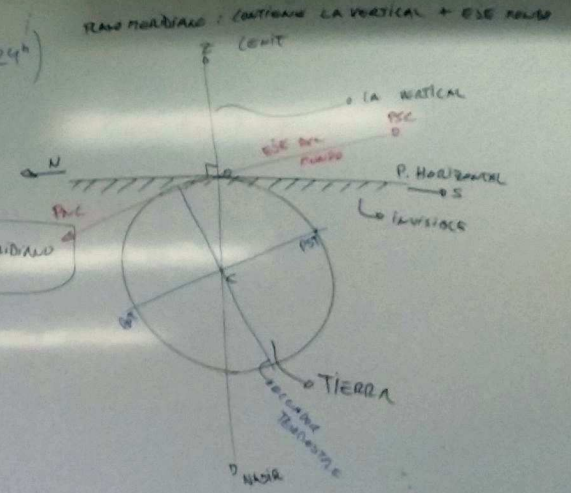 PLANO MERIDIANO: CONTIENE LA VERTICAL + EJE MUNDO
24h)
Z
CENIT
LA VERTICAL
PSC
EJE DEL
MUNDO
N
P. HORIZONTAL
S
INVISIBLE
PNC
IDIANO
PST
C
TIERRA
ECUADOR
TERRESTRE
NADIR